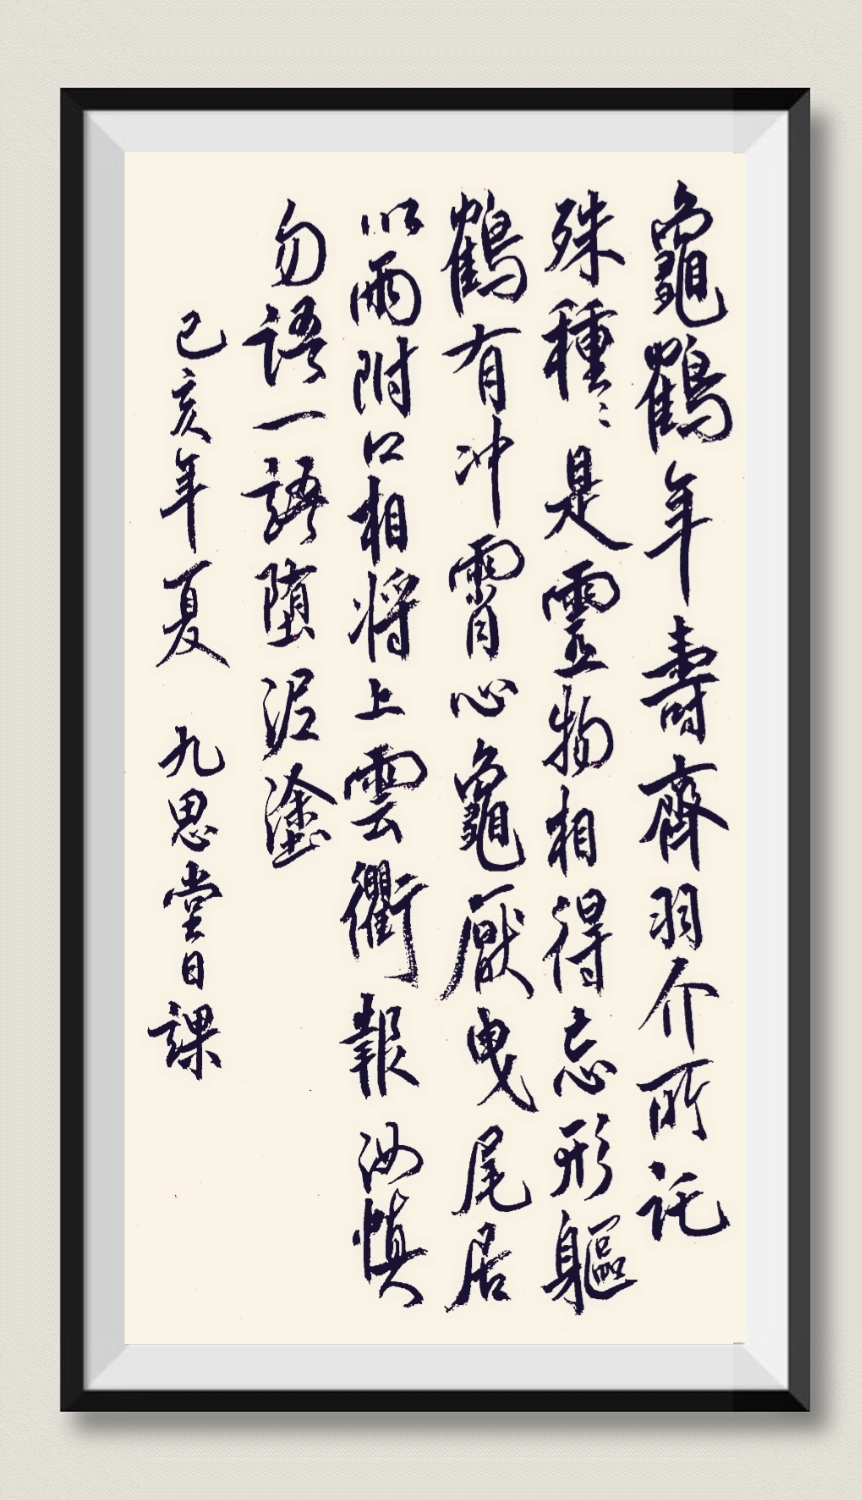 龜鶴年壽齊羽介所託
殊種〻是靈物相得忘形軀
鶴有冲霄心龜厭曳尾居
以兩附口相将上雲衢報汝慎
勿語一語墮泥塗
己亥年夏 九思堂日課